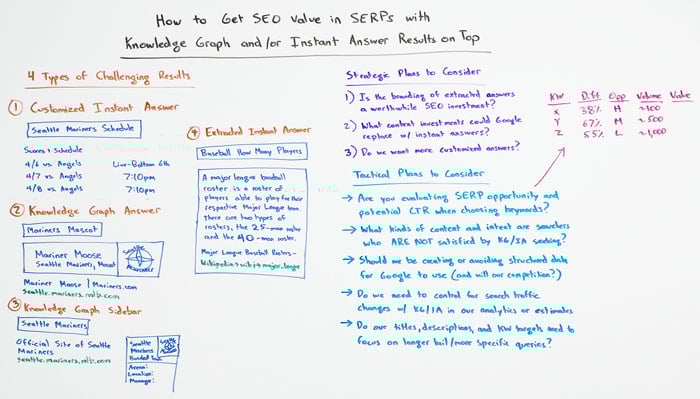 How to Get SEO Value in SERPs with
Knowledge Graph and/or Instant Answer Results on Top
4 Types of Challenging Results
① Customized Instant Answer
Seattle Mariners Schedule
Scores + Schedule
4/6 vs. Angels Live-Bottom 6th
4/7 vs. Angels 7:10pm
4/8 vs. Angels 7:10pm
② Knowledge Graph Answer
Mariners Mascot
Mariner Moose
Seattle Mariners, Mascot
Seattle
Mariners
Mariner Moose | Mariners.com
seattle.mariners.mlb.com
③ Knowledge Graph Sidebar
Seattle Mariners
Official Site of Seattle
Mariners
seattle.mariners.mlb.com
Seattle
Mariners
Baseball team
Arena:
Location:
Manager:
④ Extracted Instant Answer
Baseball How Many Players
A major league baseball
roster is a roster of
players able to play for their
respective Major League team.
There are two types of
rosters, the 25-man roster
and the 40-man roster.
Major League Baseball Rosters -
Wikipedia
Strategic Plans to Consider
1) Is the branding of extracted answers
a worthwhile SEO investment?
2) What content investments could Google
replace w/ instant answers?
3) Do we want more customized answers?
KW Diff Opp Volume Value
X 38% H ~100
Y 67% M ~500
Z 55% L ~1,000
Tactical Plans to Consider
→ Are you evaluating SERP opportunity and
potential CTR when choosing keywords?
→ What kinds of content and intent are searchers
who ARE NOT satisfied by KG/IA seeking?
→ Should we be creating or avoiding structured data
for Google to use (and will our competition?)
→ Do we need to control for search traffic
changes w/ KG/IA in our analytics or estimates
→ Do our titles, descriptions, and KW targets need to
focus on longer tail/more specific queries?